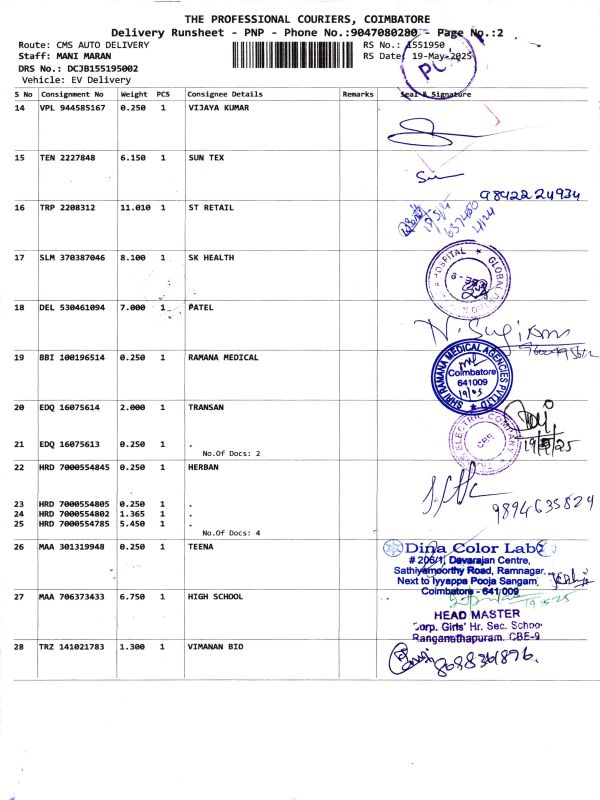 THE PROFESSIONAL COURIERS, COIMBATORE
Delivery Runsheet - PNP - Phone No.:9047080280 - Page No.:2
Route: CMS AUTO DELIVERY RS No.: 1551950
Staff: MANI MARAN RS Date: 19-May-2025
DRS No.: DCJB155195002
Vehicle: EV Delivery
S No Consignment No Weight PCS Consignee Details Remarks Seal & Signature
14 VPL 944585167 0.250 1 VIJAYA KUMAR
15 TEN 2227848 6.150 1 SUN TEX
9842224934
16 TRP 2208312 11.010 1 ST RETAIL
17 SLM 370387046 8.100 1 SK HEALTH
HOSPITAL ★ GLOBAL
18 DEL 530461094 7.000 1 PATEL
19 BBI 100196514 0.250 1 RAMANA MEDICAL
SHRI RAMANA MEDICAL AGENCIES PVT LTD
Coimbatore
641009
19/05
20 EDQ 16075614 2.000 1 TRANSAN
ELECTRIC COMPANY
CBE
21 EDQ 16075613 0.250 1 .
No.Of Docs: 2
22 HRD 7000554845 0.250 1 HERBAN
9894635824
23 HRD 7000554805 0.250 1 .
24 HRD 7000554802 1.365 1 .
25 HRD 7000554785 5.450 1 .
No.Of Docs: 4
26 MAA 301319948 0.250 1 TEENA
Dina Color Lab
# 206/1, Devarajan Centre,
Sathiyamoorthy Road, Ramnagar,
Next to Iyyappa Pooja Sangam,
Coimbatore - 641 009
27 MAA 706373433 6.750 1 HIGH SCHOOL
HEAD MASTER
Corp. Girls' Hr. Sec. School
Ranganathapuram, CBE-9
28 TRZ 141021783 1.300 1 VIMANAN BIO